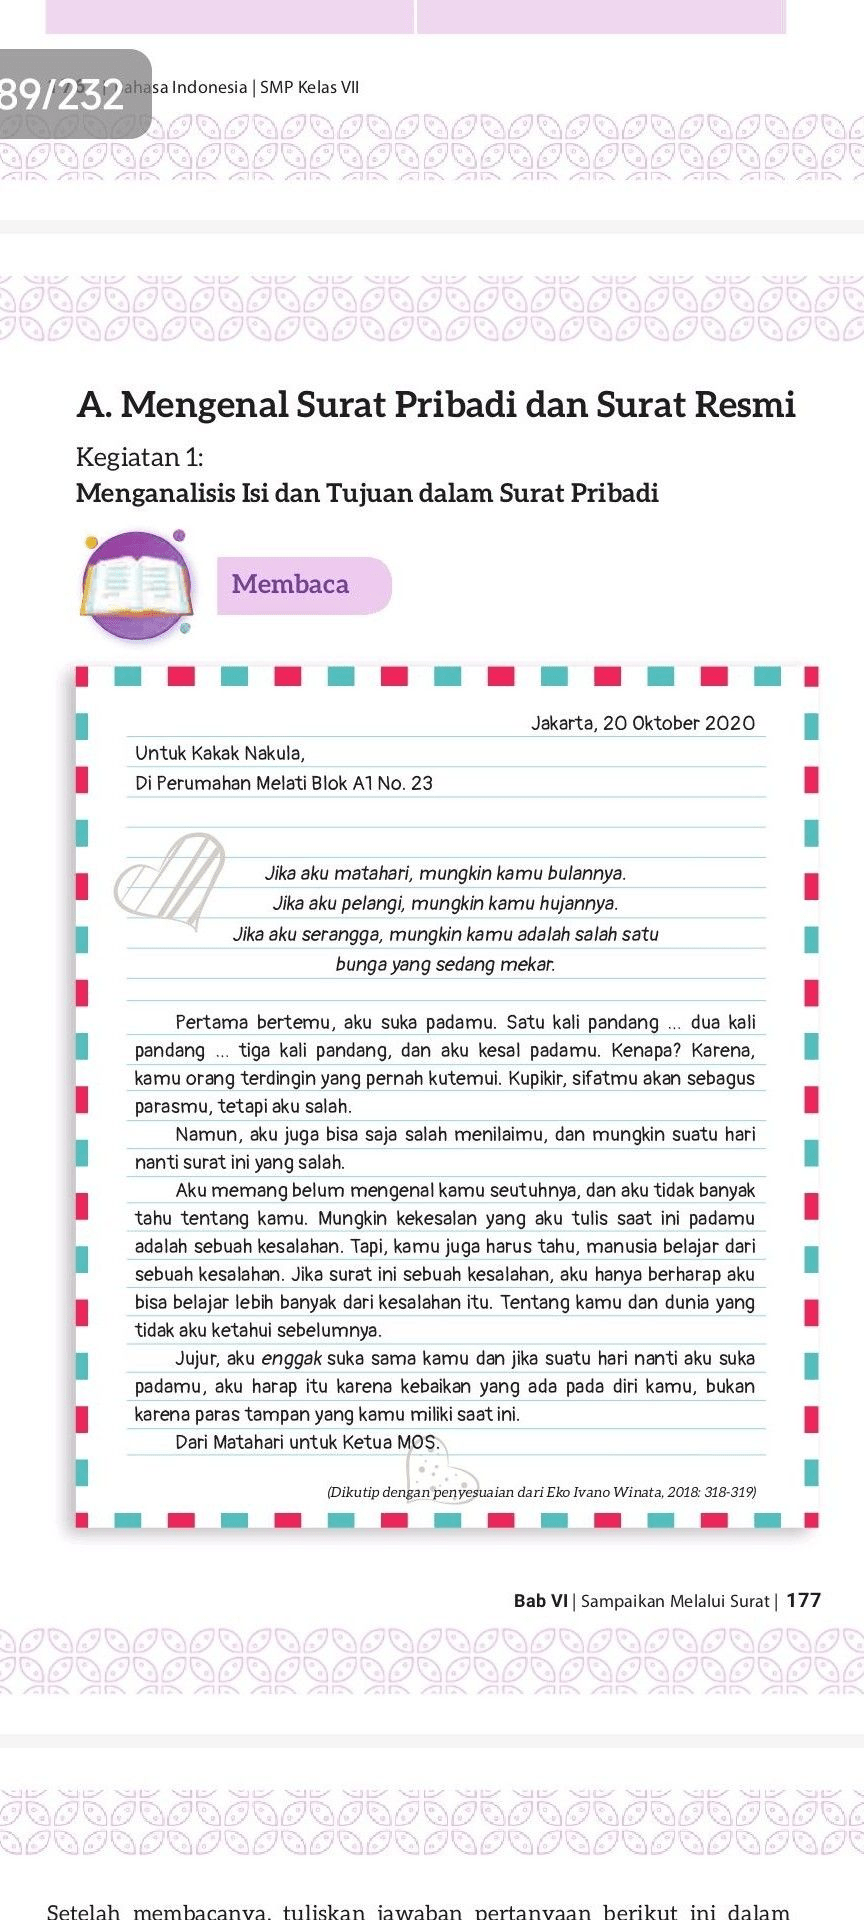 89/232
Bahasa Indonesia | SMP Kelas VII
A. Mengenal Surat Pribadi dan Surat Resmi
Kegiatan 1:
Menganalisis Isi dan Tujuan dalam Surat Pribadi
Membaca
Jakarta, 20 Oktober 2020
Untuk Kakak Nakula,
Di Perumahan Melati Blok A1 No. 23
Jika aku matahari, mungkin kamu bulannya.
Jika aku pelangi, mungkin kamu hujannya.
Jika aku serangga, mungkin kamu adalah salah satu
bunga yang sedang mekar.
Pertama bertemu, aku suka padamu. Satu kali pandang ... dua kali
pandang ... tiga kali pandang, dan aku kesal padamu. Kenapa? Karena,
kamu orang terdingin yang pernah kutemui. Kupikir, sifatmu akan sebagus
parasmu, tetapi aku salah.
Namun, aku juga bisa saja salah menilaimu, dan mungkin suatu hari
nanti surat ini yang salah.
Aku memang belum mengenal kamu seutuhnya, dan aku tidak banyak
tahu tentang kamu. Mungkin kekesalan yang aku tulis saat ini padamu
adalah sebuah kesalahan. Tapi, kamu juga harus tahu, manusia belajar dari
sebuah kesalahan. Jika surat ini sebuah kesalahan, aku hanya berharap aku
bisa belajar lebih banyak dari kesalahan itu. Tentang kamu dan dunia yang
tidak aku ketahui sebelumnya.
Jujur, aku enggak suka sama kamu dan jika suatu hari nanti aku suka
padamu, aku harap itu karena kebaikan yang ada pada diri kamu, bukan
karena paras tampan yang kamu miliki saat ini.
Dari Matahari untuk Ketua MOS.
(Dikutip dengan penyesuaian dari Eko Ivano Winata, 2018: 318-319)
Bab VI | Sampaikan Melalui Surat | 177
Setelah membacanya, tuliskan jawaban pertanyaan berikut ini dalam